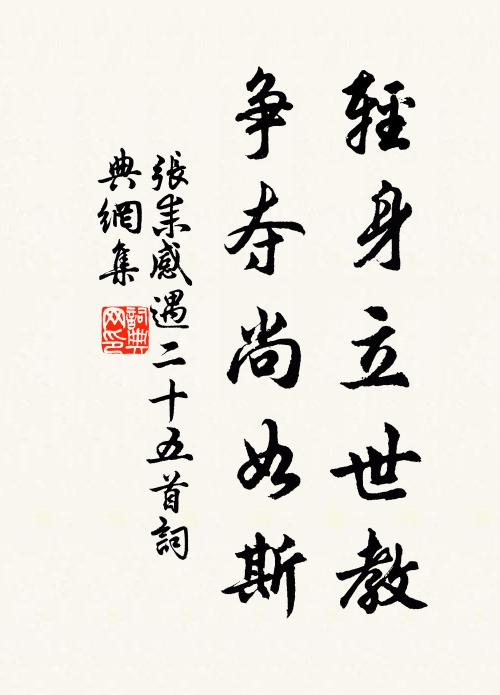 輕身立世教
争夺尚如斯
張耒感遇二十五首詞
典網集
詞典
网印